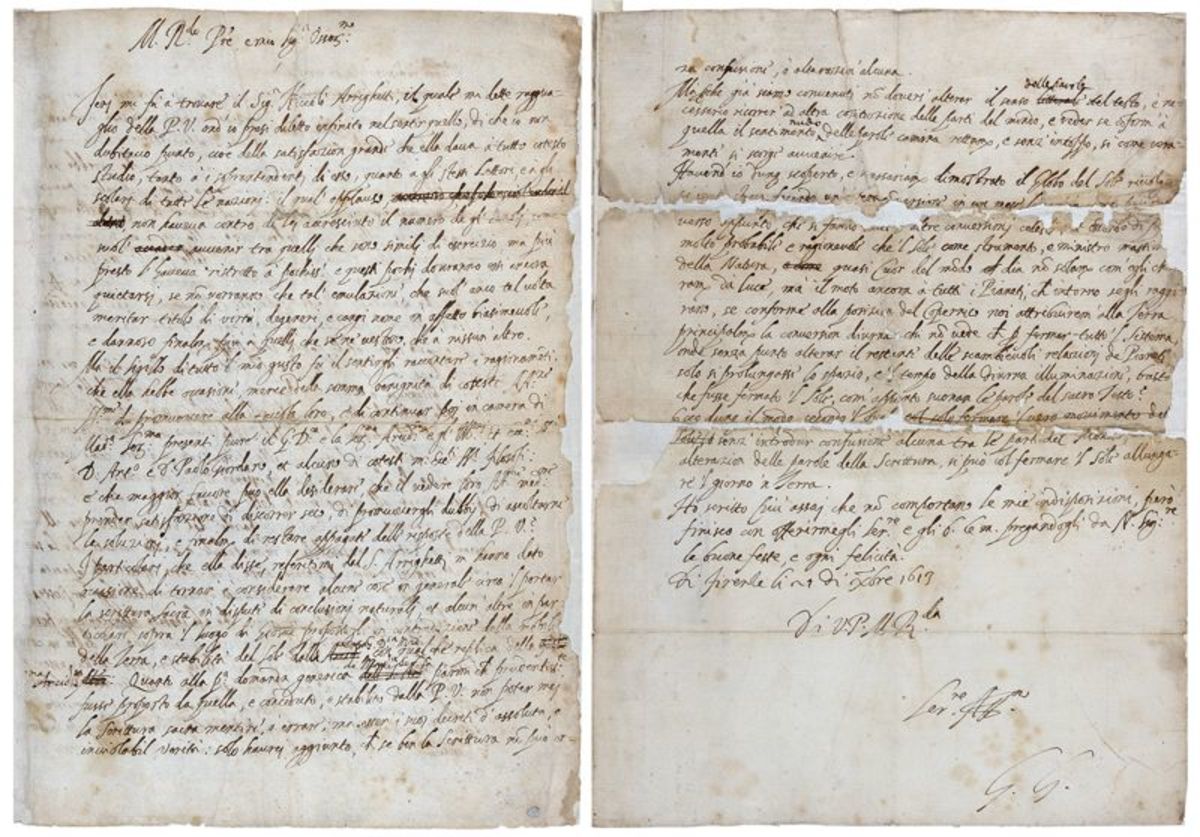 M. R.do P.re e mio Sig.r Oss.mo
Ieri mi fu à trovare il Sig. Niccolò Arrighetti, il quale mi dette raggua-
glio della P. V. ond'io presi diletto infinito nel sentir quello, di che io non
dubitavo punto, cioè della satisfazion grande che ella dava à tutto cotesto
studio, tanto à i soprintendenti di esso, quanto à gli stessi lettori e à gli
scolari di tutte le nazioni: il qual applauso
non haveva contro di lei accresciuto il numero de gli
suole avvenir tra quelli che sono simili di esercizio, ma più
presto l'haveva ristretto à pochiss.i e questi pochi dovranno essi ancora
quietarsi, se non vorranno che tale emulazione, che suole anco tal volta
meritar titolo di virtù, degeneri, e cangi nome in affetto biasimevole,
e dannoso finalm.te più à quelli che se ne vestono, che à nissun altro.
Ma il sigillo di tutto il mio gusto fu il sentirgli raccontar i ragionamenti
che ella hebbe occasione, mercè della somma benignità di coteste AA.
di promuovere alla tavola loro, e di continuar poi in camera di
Mad. Ser.ma presenti pure il G. D. e la Ser. Arcid.
D. Ant.o e D. Paolo Giordano, et alcuni di cotesti
e che maggior favore può ella desiderare, che il vedere loro
prender satisfazione di discorrer seco, di promuovergli dubbi, di ascoltarne
le soluzioni, e finalm. di restar appagate delle risposte della P. V.
I particolari, che ella disse, referitimi dal S. Arrighetti, mi hanno dato
occasione di tornar à considerare alcune cose in generale circa 'l portar
la scrittura sacra in dispute di conclusioni naturali, et alcun'altre in par-
ticolare sopra 'l luogo di Giosuè propostogli in contradizione della mobilità
della Terra, e stabilità del Sole dalla con qualche replica della
Quanto alla p.a domanda generica di parmi che prudentiss.
fusse proposto da quella, e conceduto, e stabilito dalla P. V. non poter mai
la scrittura sacra mentire, ò errare, ma esser i suoi decreti d'assoluta, e
inviolabil verità: solo haurei aggiunto, che se ben la Scrittura
na confusione, ò alterazione alcuna.
delle parole
Ma perche già siamo convenuti non doversi alterar il senso litterale del testo, è ne-
cessario ricorrer ad altra costituzione delle parti del mondo, e veder se conforme à
nudo
quella il sentimento delle parole camina rettam. e senza intoppo, sì come vera-
mente si scorge avvenire.
Havend'io dunq. scoperto, e necessariam. dimostrato il Globo del Sole rivolgersi
in se stesso facendo un'intera conversione in un mese
verso appunto che si fanno altre conversioni celesti
molto probabile, e ragionevole che 'l Sole come strumento, e ministro massimo
della Natura, quasi Cuor del mondo dia non solam. com'egli chia-
ram. dà luce, ma il moto ancora à tutti i Pianeti, che intorno se gli raggi-
rano, se conforme alla posizion del Copernico noi attribuirem alla Terra
principalm. la conversion diurna, chi non vede che p fermar tutto 'l sistema
onde senza punto alterar il restante delle scambievoli relazioni de Pianeti
solo si prolungasse lo spazio, e 'l tempo della diurna illuminazione, basto
che fusse fermato 'l Sole, com'appunto suonan le parole del sacro Testo?
Ecco dunq. il modo secondo 'l quale
senza introdur confusione alcuna tra le parti del Mondo
alterazion delle parole della Scrittura, si può col fermare 'l Sole allunga-
re 'l giorno in Terra.
Hò scritto più assai che non comportano le mie indisposizioni, però
finisco con offerirmegli Ser.re e gli b. le m. pregandogli da N. Sig.re
le buone feste e ogni felicità.
Di Firenze li 21 di Xbre 1613
Di V. P. M. R.da
Ser.re Aff.mo
G. G.